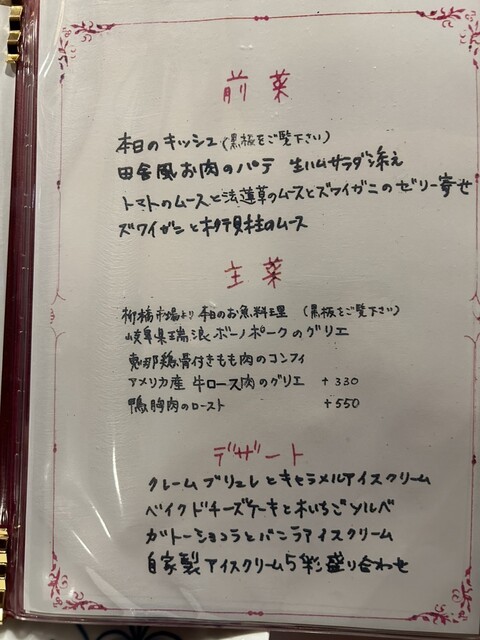 前菜
本日のキッシュ（黒板をご覧下さい）
田舎風お肉のパテ 生ハムサラダ添え
トマトのムースと法蓮草のムースとズワイガニのゼリー寄せ
ズワイガニと帆立貝柱のムース
主菜
柳橋市場より本日のお魚料理 （黒板をご覧下さい）
岐阜県瑞浪ボーノポークのグリエ
恵那鶏骨付きもも肉のコンフィ
アメリカ産 牛ロース肉のグリエ +330
鴨胸肉のロースト +550
デザート
クレームブリュレとキャラメルアイスクリーム
ベイクドチーズケーキと木いちごソルベ
ガトーショコラとバニラアイスクリーム
自家製アイスクリーム5彩盛り合わせ